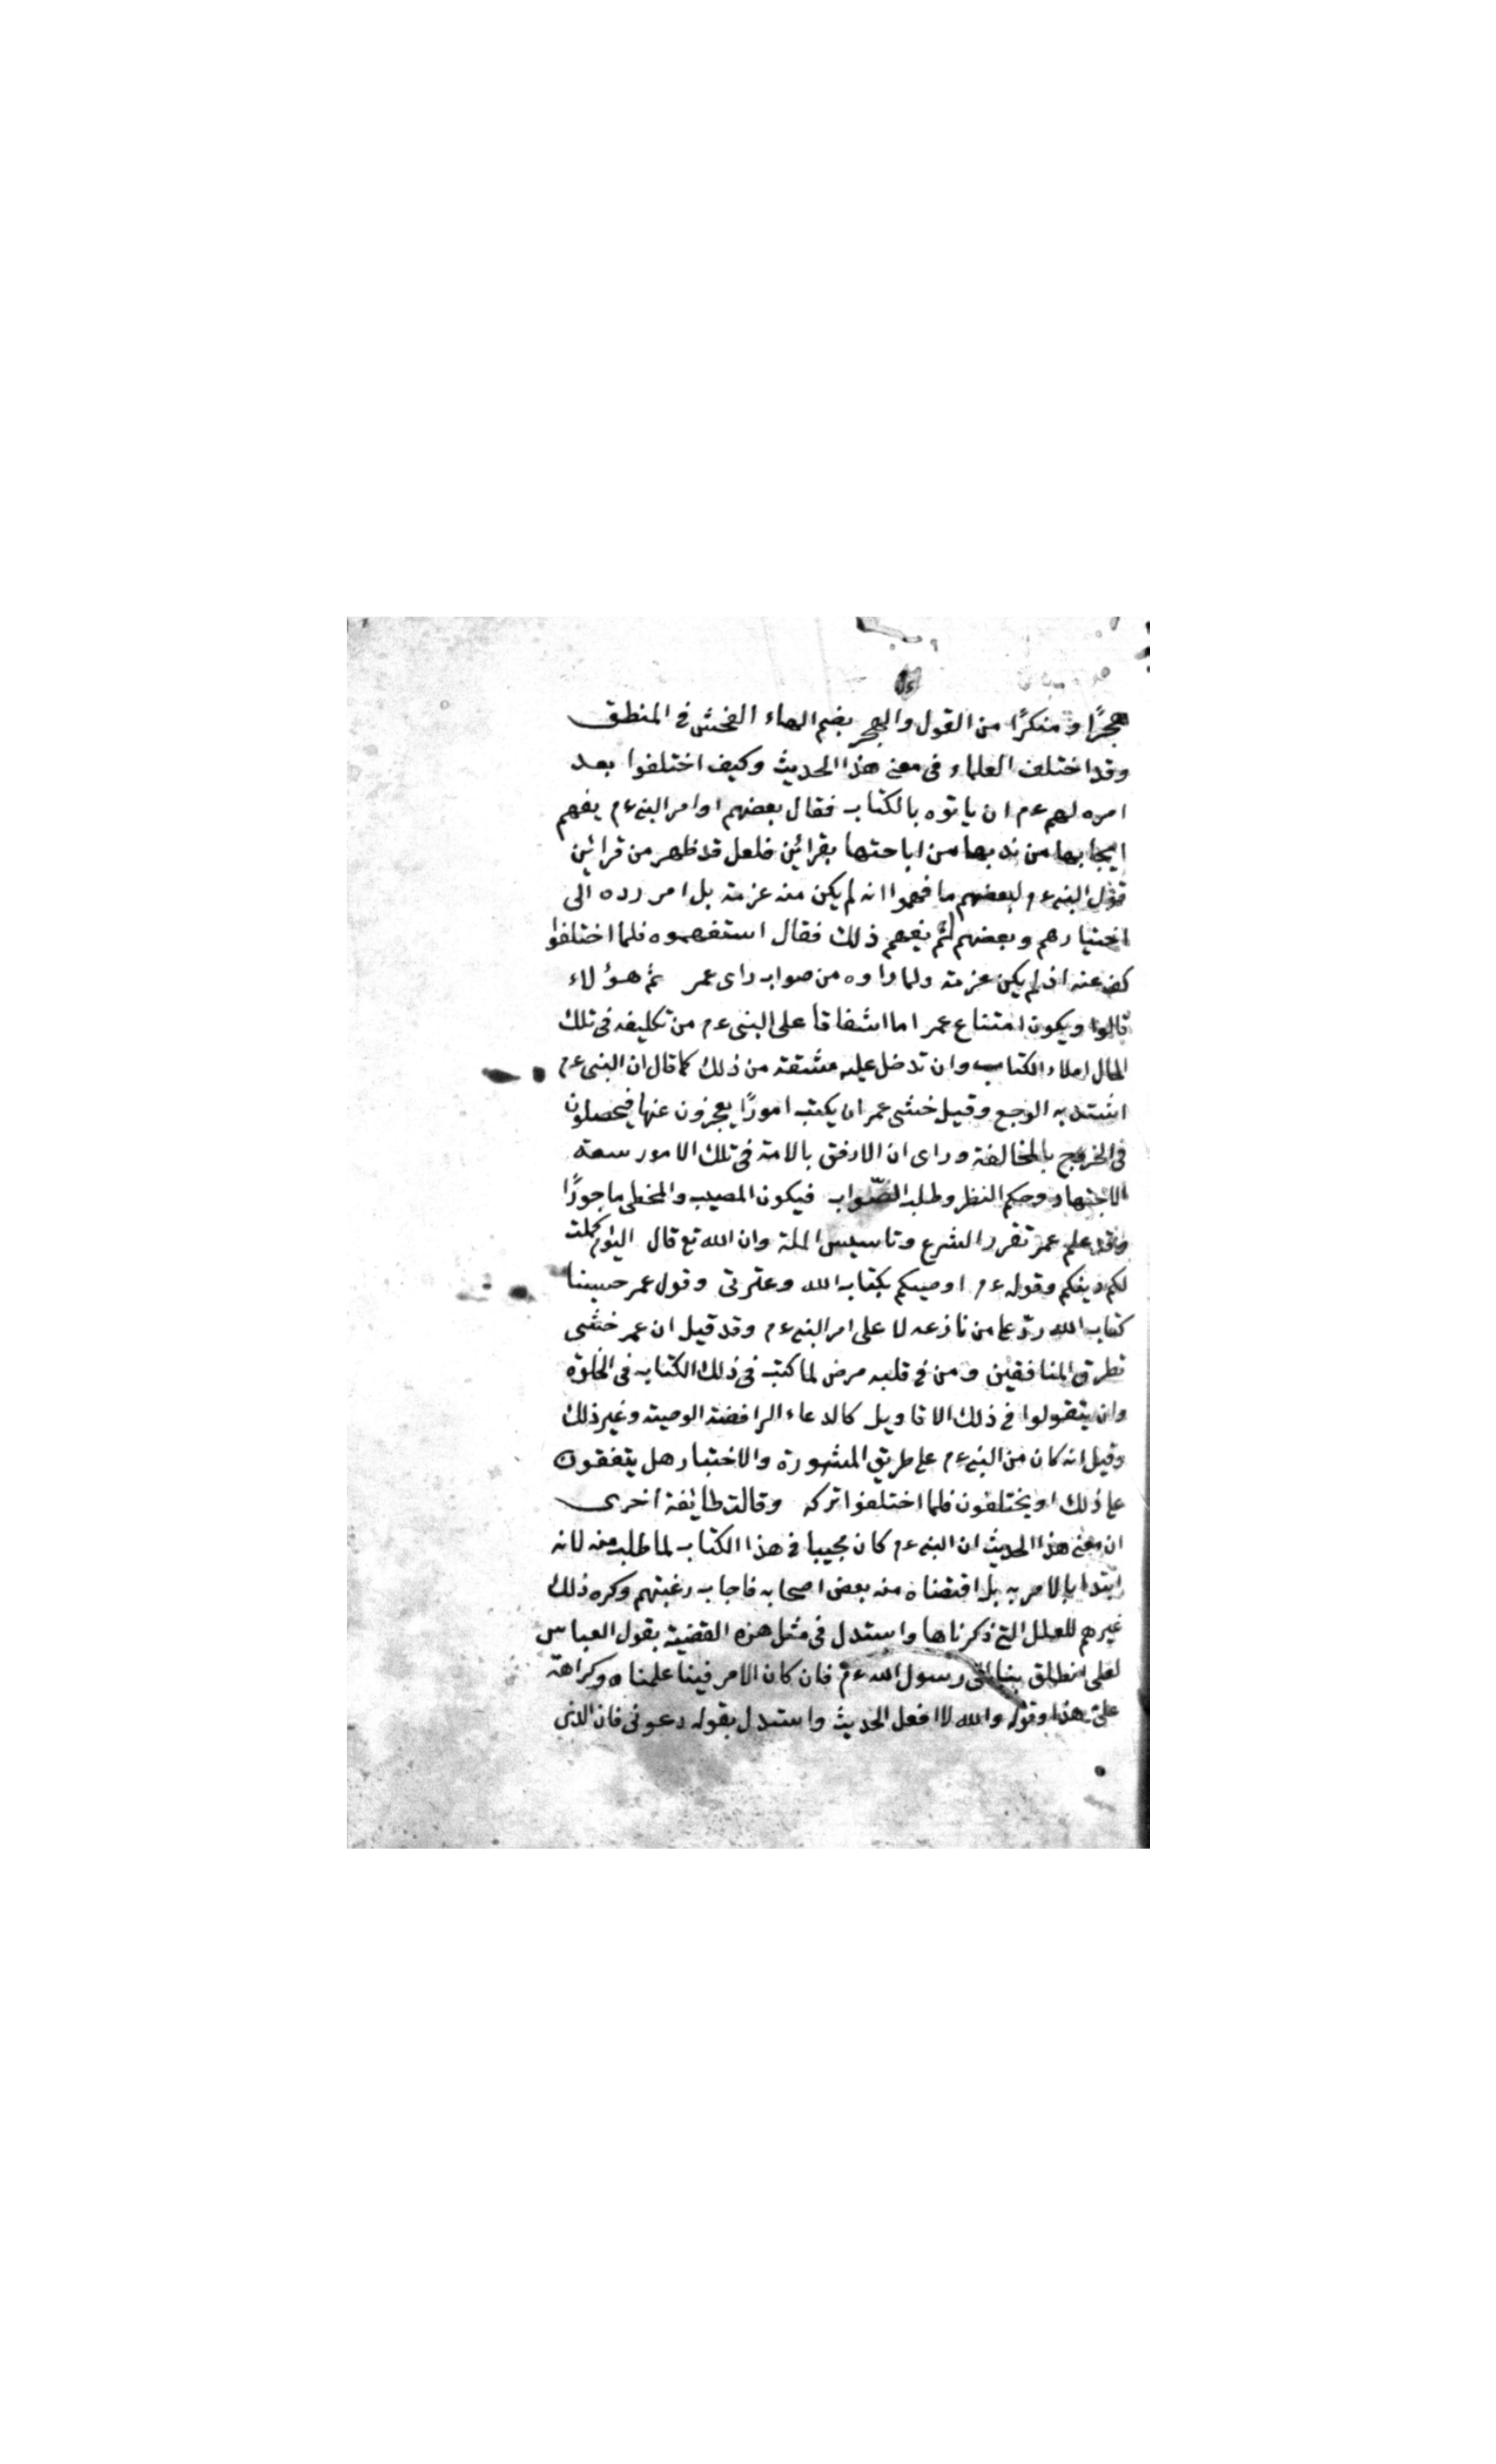 هجرًا ومنكرًا من القول والهجر بضم الهاء الفحش في المنطق
وقد اختلف العلماء في معنى هذا الحديث وكيف اختلفوا بعد
امره لهم عم ان ياتوه بالكتاب فقال بعضهم اوامر النبي عم يفهم
ايجابها من ندبها من اباحتها بقرائن فلعل قد ظهر من قرائن
قول النبي عم لبعضهم ما فهموا انه لم يكن منه عزمة بل امر رده الى
اختيارهم وبعضهم لم يفهم ذلك فقال استفهموه فلما اختلفوا
كف عنه اذ لم يكن عزمة ولما راوه من صواب راى عمر ثم هؤلاء
قالوا ويكون امتناع عمر اما اشفاقا على النبي عم من تكليفه في تلك
الحال املاء الكتاب وان تدخل عليه مشقة من ذلك كما قال ان النبي عم
اشتد به الوجع وقيل خشى عمر ان يكتب امورًا يعجزون عنها فيحصلون
في الخروج بالمخالفة وراى ان الارفق بالامة في تلك الامور سعة
الاجتهاد وحكم النظر وطلب الصّواب فيكون المصيب والمخطى ماجورًا
وقد علم عمر تقرر الشرع وتاسيس الملة وان الله تع قال اليوم اكملت
لكم دينكم وقوله عم اوصيكم بكتاب الله وعترتى وقول عمر حسبنا
كتاب الله ردّ على من نازعه لا على امر النبي عم وقد قيل ان عمر خشى
تطرق المنافقين ومن في قلبه مرض لما كتب في ذلك الكتاب في الخلوة
وان يتقولوا في ذلك الاقاويل كالدعاء الرافضة الوصية وغير ذلك
وقيل انه كان من النبي عم على طريق المشورة والاختبار هل يتفقون
على ذلك او يختلفون فلما اختلفوا تركه وقالت طائفة اخرى
ان معنى هذا الحديث ان النبي عم كان مجيبا في هذا الكتاب لما طلب منه لانه
ابتدا بالامر به بل اقتضاه منه بعض اصحابه فاجاب رغبتهم وكره ذلك
غيرهم للعلل التي ذكرناها واستدل في مثل هذه القضية بقول العباس
لعلى انطلق بنا الى رسول الله عم فان كان الامر فينا علمناه وكراهة
علىّ هذا وقوله والله لا افعل الحديث واستدل بقوله دعونى فان الذى